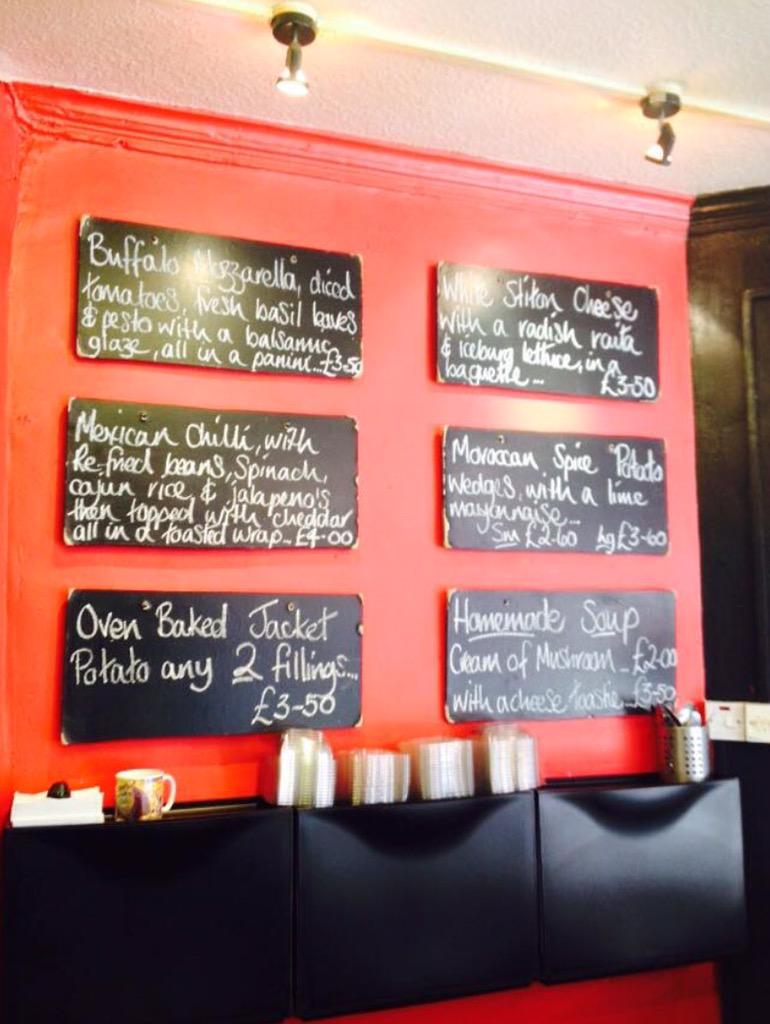 Buffalo Mozzarella, diced
tomatoes, fresh basil leaves
& pesto with a balsamic
glaze, all in a panini...£3-50
White Stilton Cheese
with a radish raita
& iceburg lettuce, in a
baguette... £3-50
Mexican Chilli, with
Re-fried beans, Spinach,
cajun rice, & jalapeno's
then topped with cheddar
all in a toasted wrap... £4-00
Moroccan Spice Potato
wedges, with a lime
mayonnaise...
Sm £2-60 Lg £3-60
Oven Baked Jacket
Potato any 2 fillings...
£3-50
Homemade Soup
Cream of Mushroom... £2-00
with a cheese toastie... £3-50